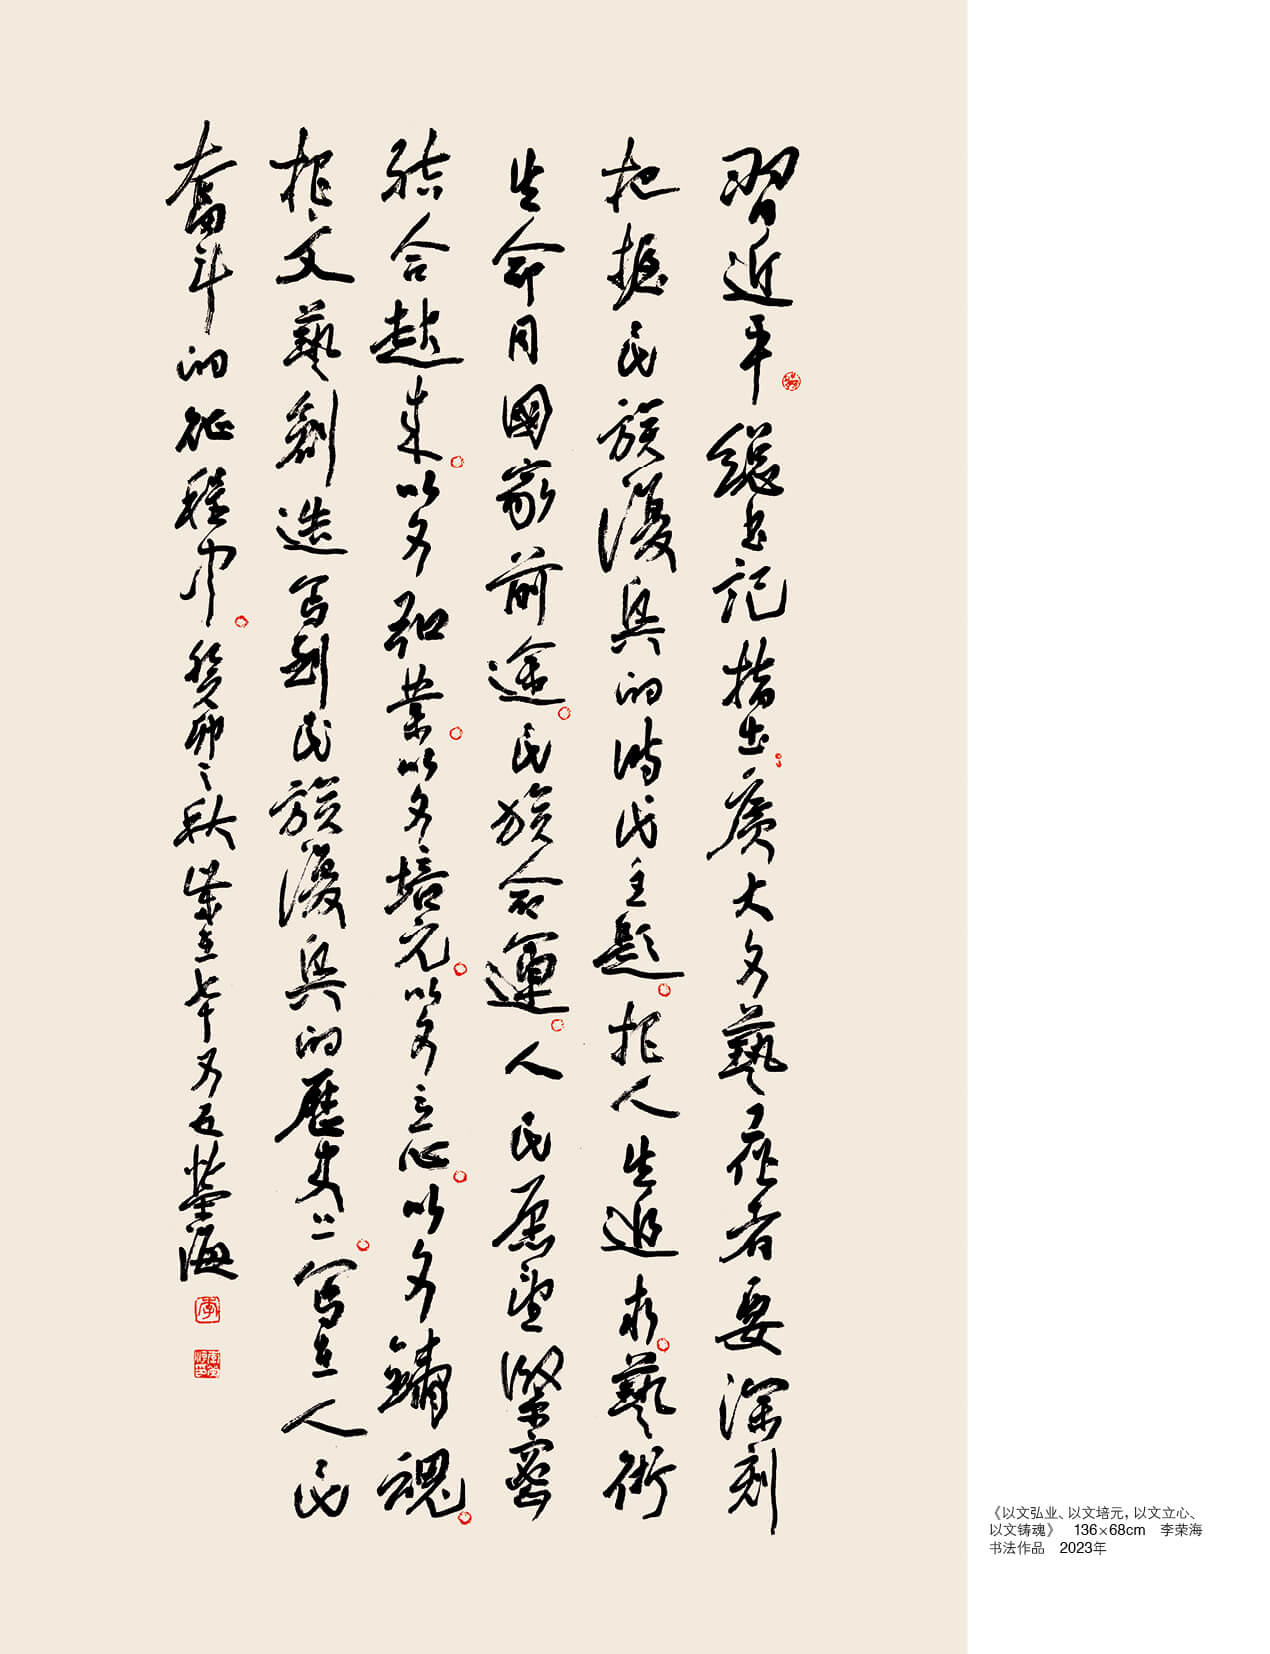 習近平總书記指出廣大文藝工作者要深刻
把握民族復興的時代主題把人生追求藝術
生命同國家前途民族命運人民願望緊密
結合起来以文弘業以文培元以文立心以文鑄魂
把文藝創造写到民族復興的歷史上寫在人民
奮斗的征程中癸卯之秋歲在七十又五榮海
李
《以文弘业、以文培元，以文立心、
以文铸魂》 136×68cm 李荣海
书法作品 2023年